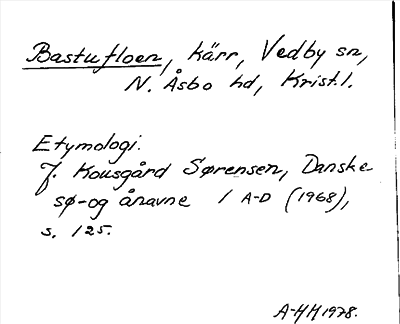 Bastufloen, kärr, Vedby sn,
N. Åsbo hd, Krist.l.
Etymologi.
J. Kousgård Sørensen, Danske
sø- og ånavne 1 A-D (1968),
s. 125.
A-HH 1978.